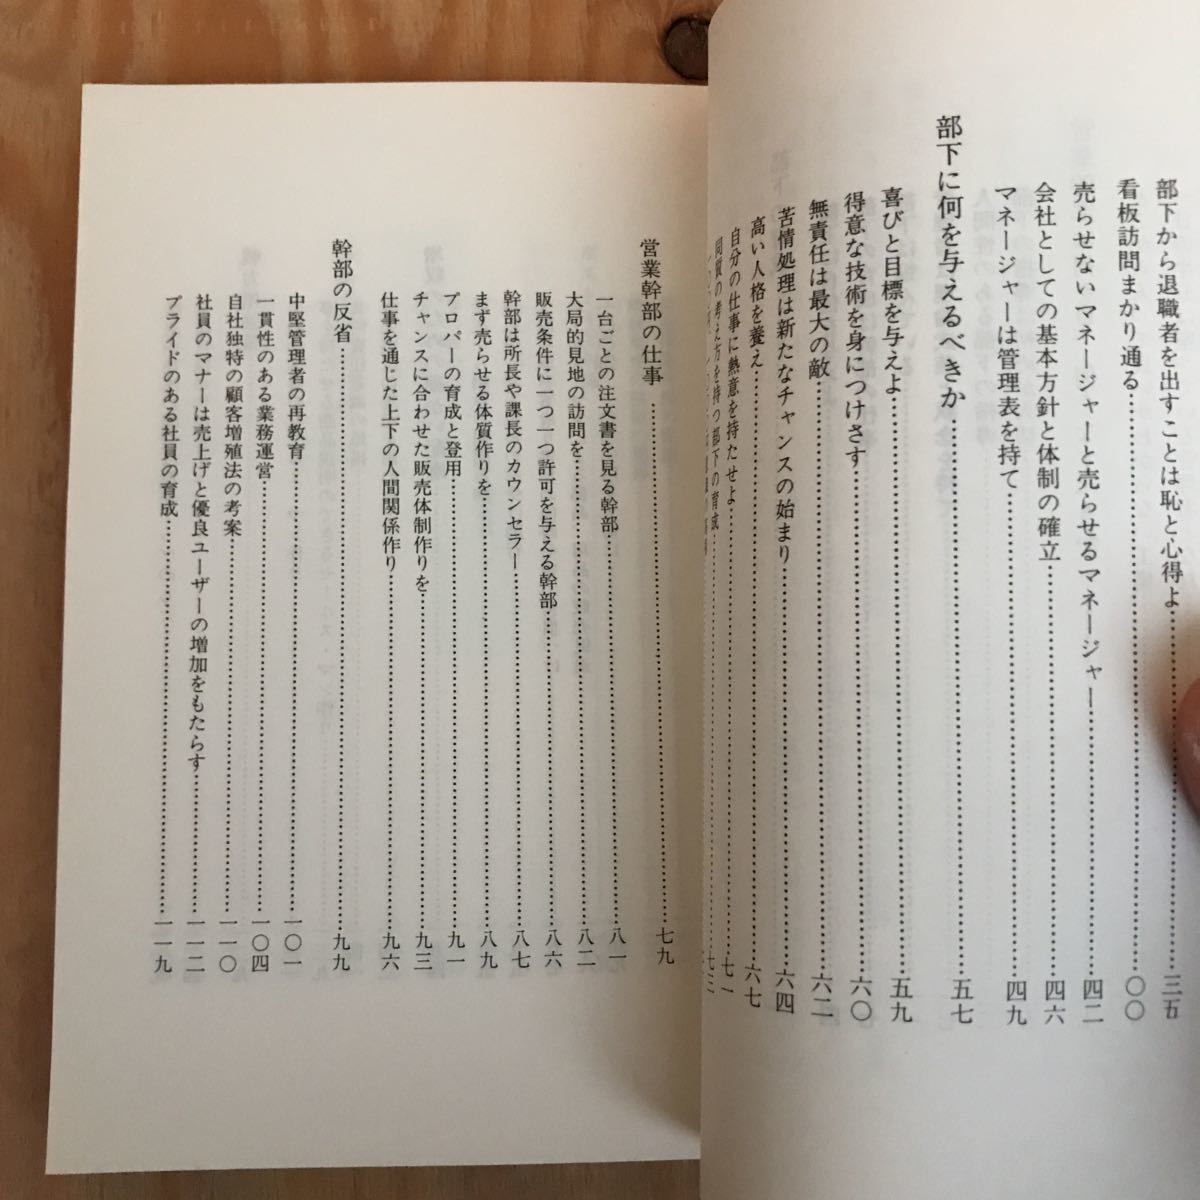 部下から退職者を出すことは恥と心得よ……三五
看板訪問まかり通る……〇〇
売らせないマネージャーと売らせるマネージャー……四二
会社としての基本方針と体制の確立……四六
マネージャーは管理表を持て……四九
部下に何を与えるべきか……五七
喜びと目標を与えよ……五九
得意な技術を身につけさす……六〇
無責任は最大の敵……六二
苦情処理は新たなチャンスの始まり……六四
高い人格を養え……六七
自分の仕事に熱意を持たせよ……七一
同質の考え方を持つ部下の育成……七三
営業幹部の仕事……七九
一台ごとの注文書を見る幹部……八一
大局的見地の訪問を……八二
販売条件に一つ一つ許可を与える幹部……八六
幹部は所長や課長のカウンセラー……八七
まず売らせる体質作りを……八九
プロパーの育成と登用……九一
チャンスに合わせた販売体制作りを……九三
仕事を通じた上下の人間関係作り……九六
幹部の反省……九九
中堅管理者の再教育……一〇一
一貫性のある業務運営……一〇四
自社独特の顧客増殖法の考案……一一〇
社員のマナーは売上げと優良ユーザーの増加をもたらす……一一二
プライドのある社員の育成……一一九